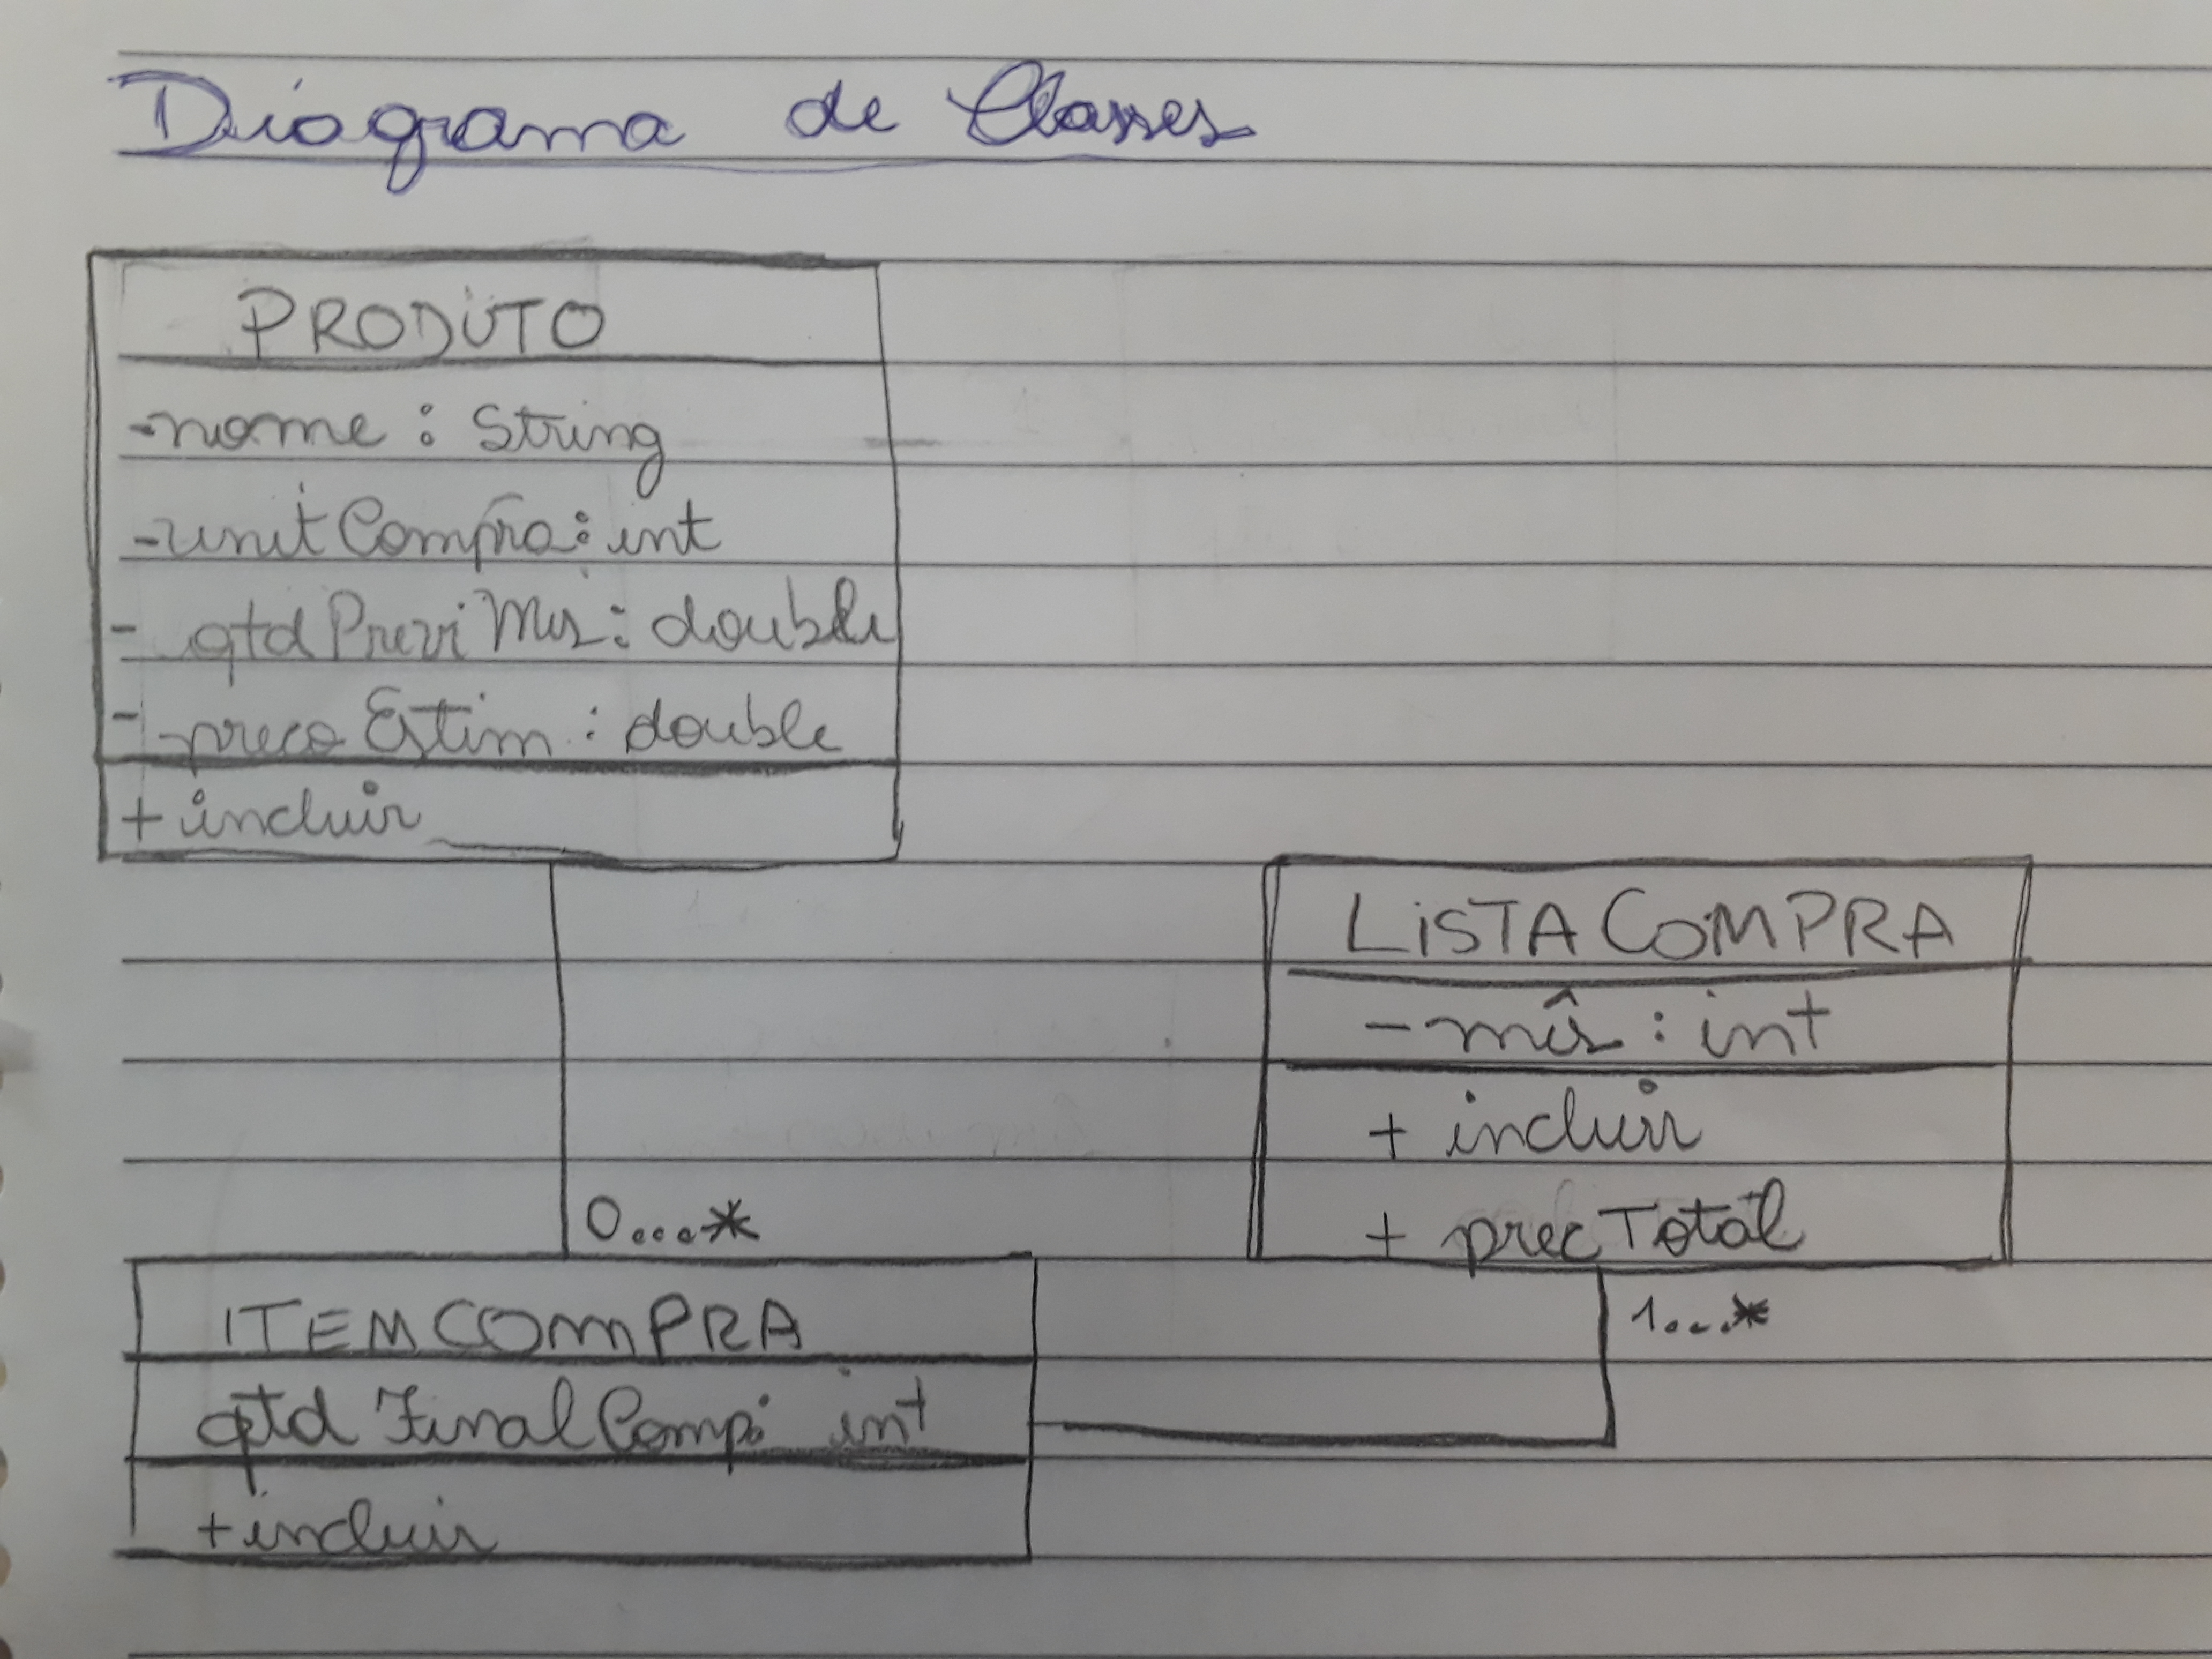 Diagrama de Classes
PRODUTO
- nome : String
- unitCompra : int
- qtdPreviMes : double
- precoEstim : double
+ incluir
LISTACOMPRA
- mês : int
+ incluir
+ precTotal
0...*
1...*
ITEMCOMPRA
qtdFinalComp: int
+ incluir